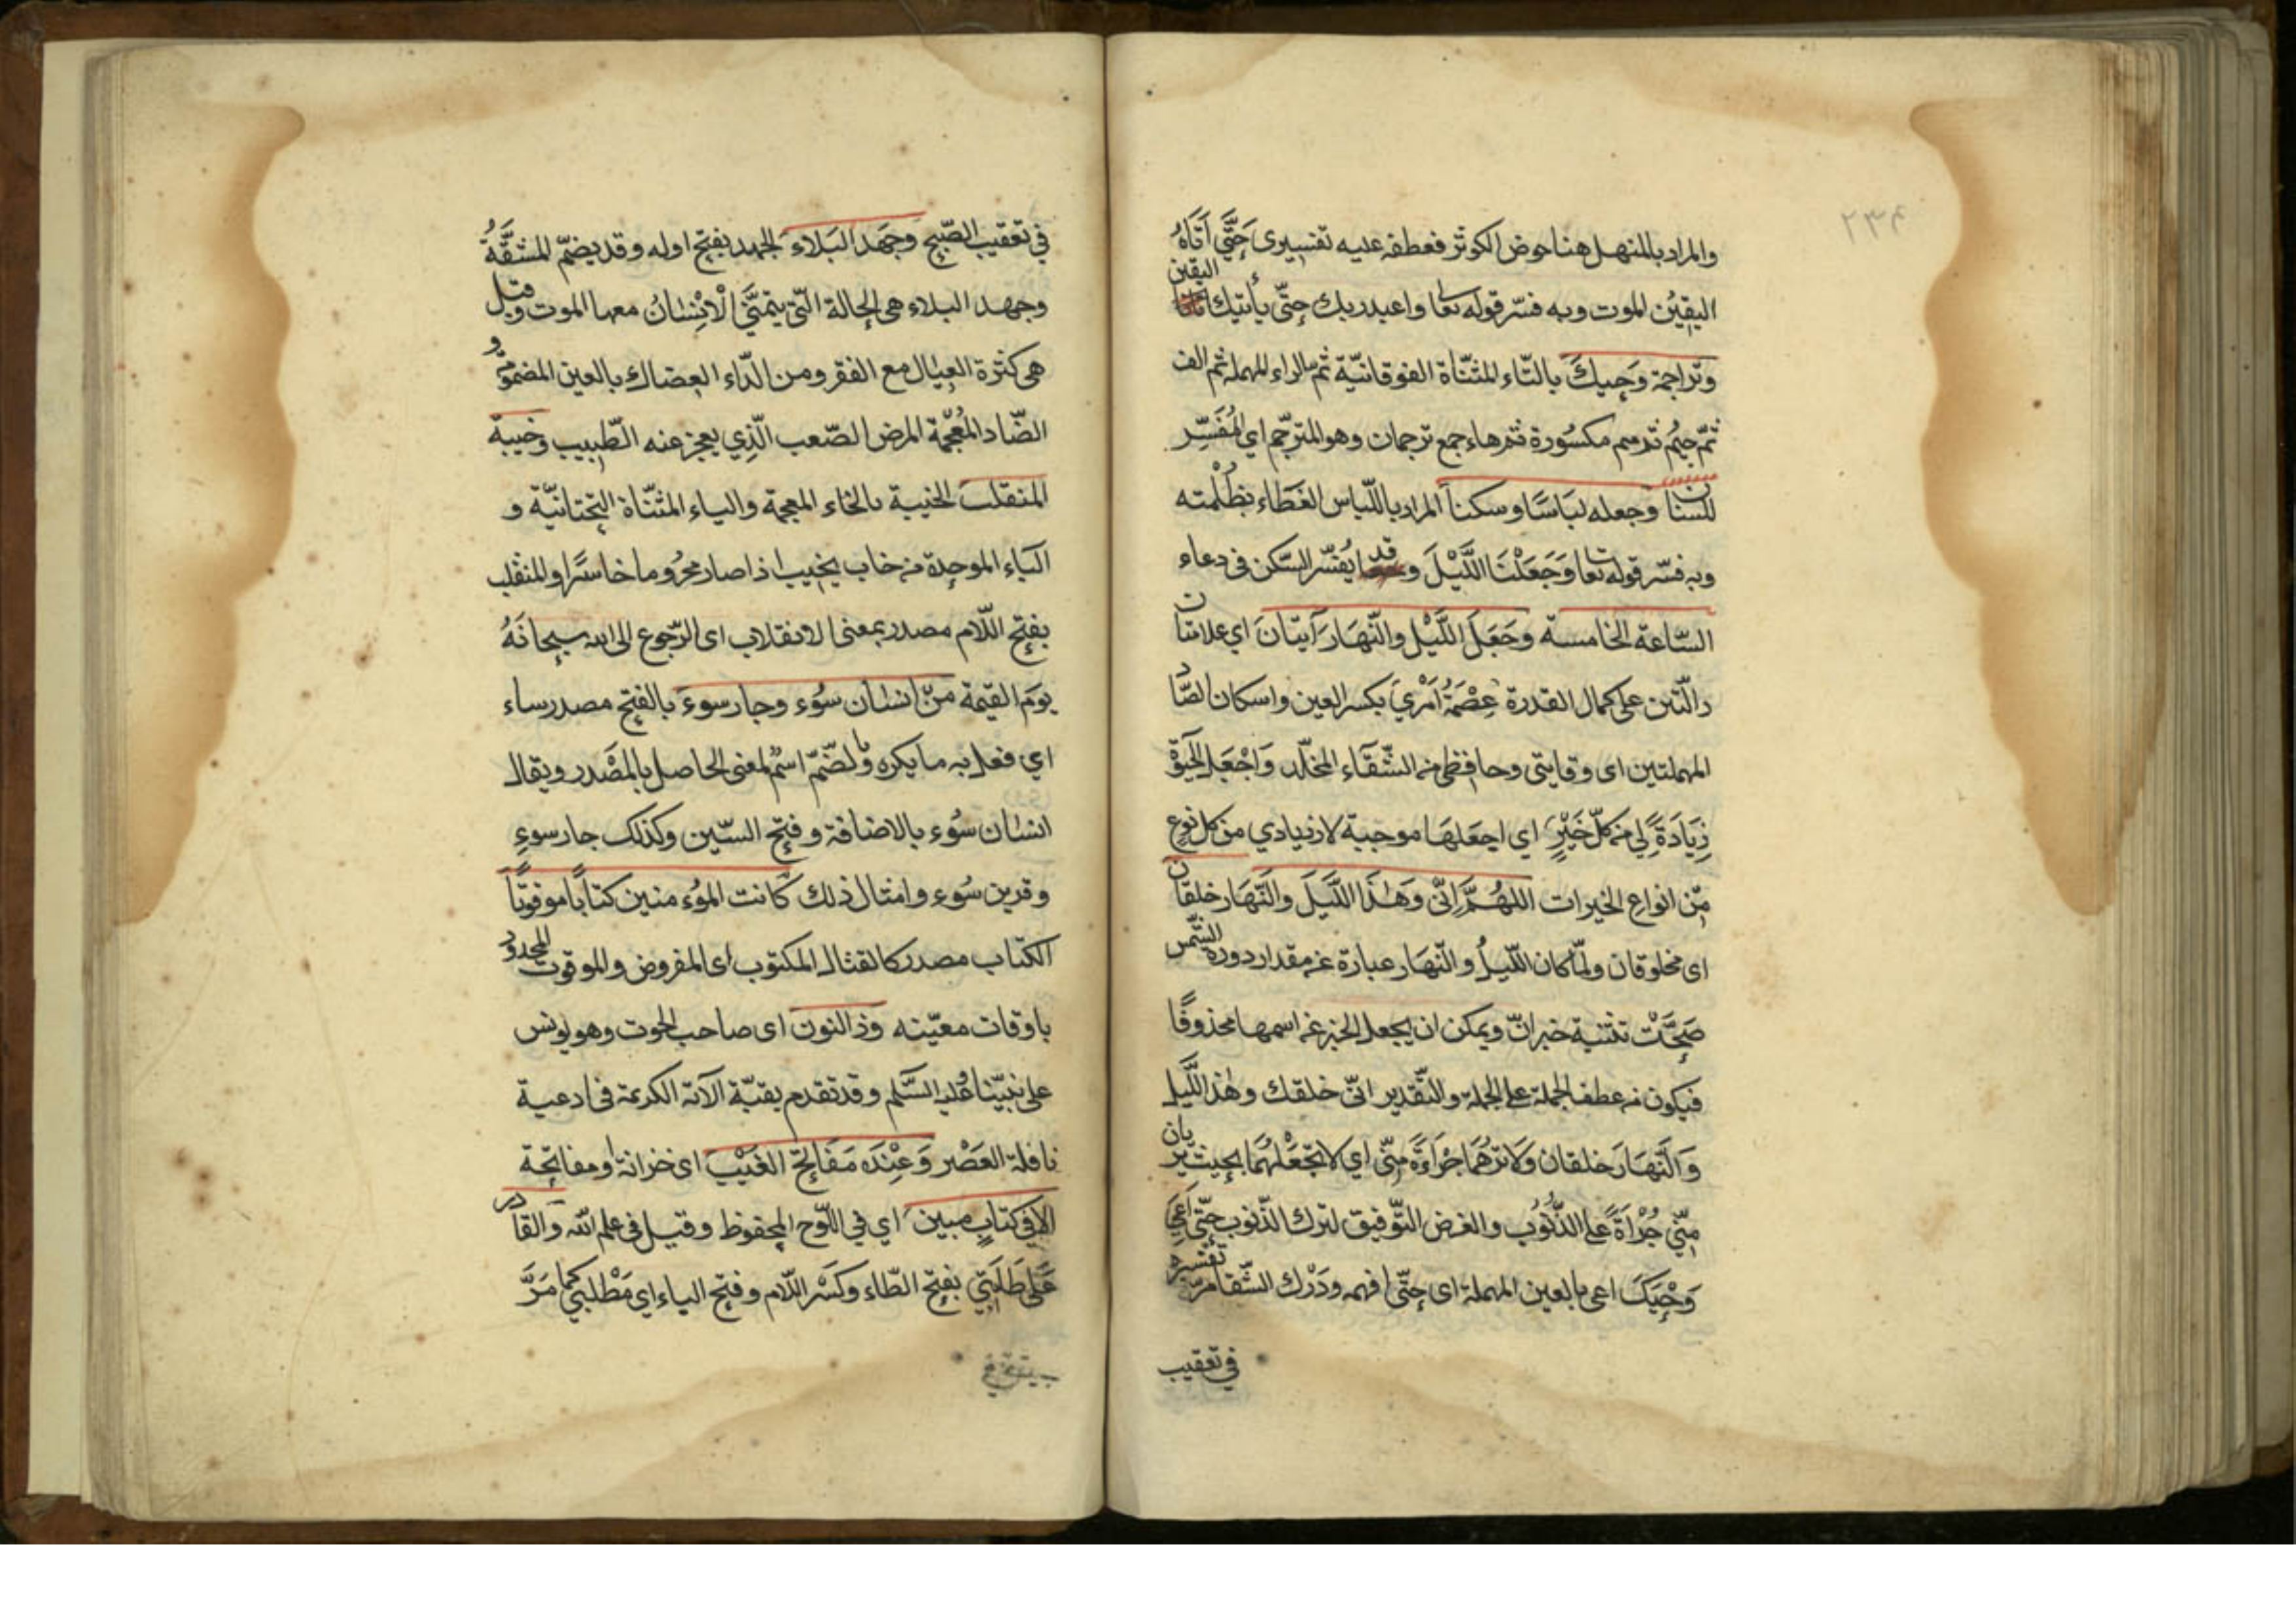 ٢٣۴
والمراد بالمنهل هنا حوض الكوثر فعطفه عليه تفسيرى حَتَّى أَتَاهُ
اليقينُ الموت وبه فسّر قوله تعا واعبد ربك حتّى يأتيك اليقين
وتراجمة وَحيِكَ بالتّاء المثنّاة الفوقانيّة ثم الراء المهملة ثم الف
ثمّ جيمُ ثم ميم مكسُورة ثم هاء جمع ترجمان وهو المترجّم اي المُفَسِّر
للسننا وجعله لبَاسًا وسكنا المراد باللّباس الغطَاء بظُلْمته
وبه فسّر قوله تعا وَجَعَلْنَا اللَّيْلَ وقد يُفسّر السّكن فى دعاء
السّاعة الخامسة وجَعَلَ اللَّيْل والنّهَار آيتَان اي علامتان
دالّتين على كمال القدرة عِصْمَةُ أَمْرِيَ بكسر العين واسكان الصّاد
المهملتين اى وقايتى وحافظى من الشّقَاء المخلّد وَاجْعَل الحَيٰوةَ
زِيَادَةً لِي من كلّ خَيْرٍ اي اجعَلهَا موجبة لازديادي من كل نوع
مّن انواع الخيرات اللهُمَّ إِنّى وَهٰذَا اللَّيَلَ والنَّهَار خلقان
اى مخلوقان ولمّا كان اللّيلُ والنّهَار عبارة عن مقدار دورة الشّمس
صَحَّتْ تثنية خبر انّ ويمكن ان يجعل الخبر عن اسمها محذوفًا
فيكون من عطف الجملة على الجملة والتّقدير انّى خلقك وهٰذا اللَّيل
وَالنَّهَارَ خلقان وَلَا تُرِهُمَا جُرَاءَةً مِنّى اي لا تجْعَلْهُمَا بحيث يريان
مِنّي جُرْاَةً على الذُّنُوُب والغرض التّوفيق لترك الذّنوب حتّى أَعِيَ
وَحْيَكَ اعى بالعين المهملة اى حتّى افهمه ودَرْك الشّقا مرّ تفسيره
في تعقيب
في تعقيب الصّبح وجَهَد البَلاء الجهد بفتح اوله وقد يضمّ المشقَّةُ
وجهد البلاء هى الحالة الّتى يتمنَّى الْاِنْسٰانُ معها الموت وقيل
هى كثرة العِيَال مع الفقر ومن الدّاء العضال بالعين المضمومة و
الضّاد المُعْجمة المرض الصّعب الّذِي يعجز عنه الطّبيب وخيبة
المنقلب الخيبة بالخاء المعجمة والياء المثنّاة التحتانيّة و
الباء الموحدة من خاب يخيب اذا صار محرُوما خاسرًا والمنقلب
بفتح اللّام مصدر بمعنى الانقلاب اى الرّجوع الى الله سبحانَهُ
يومَ القيٰمة مَنّ انسان سوُء وجار سوء بالفتح مصدر ساء
اي فعل به ما يكره وبالضّمّ اسْم لمعنى الحاصل بالمَصْدر ويقال
انسٰان سوُء بالاضافة وفتح السّين وكذلك جار سوءٍ
وقرين سوُء وامثال ذلك كانت المؤمنين كتابًا موقوتًا
الكتاب مصدر كالقتال المكتوب اى المفروض والموقوت المحدود
باوقات معيّنه وذا النون اى صاحب الحوت وهو يونس
على نبيّنا وعليه السَّلٰم وقد تقدم بقيّة الآية الكريمة فى ادعية
نافلة العَصْر وَعِنْدَه مَفَاتِحُ الغَيْب اى خزانة او مفاتحة
الا فى كتابٍ مبين اي في اللّوح المحفوظ وقيل فى علم الله وَالقادر
عَلى طَلِبَتِي بفتح الطّاء وكَسْر اللّام وفتح الباء اي مَطْلبي كما مَرَّ